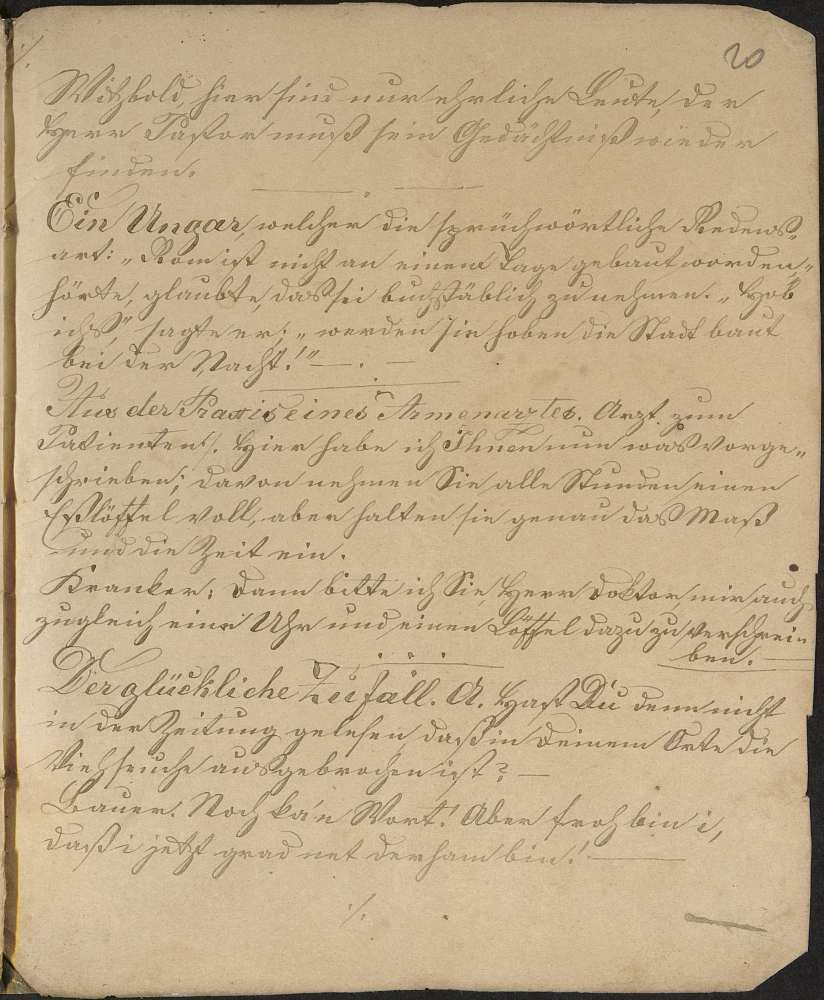 20
./.
Witzbold, hier sind nur ehrliche Leute, der
Herr Pastor muß sein Gedächtniß wieder
finden.
Ein Ungar, welcher die sprüchwörtliche Redens-
art: „Rom ist nicht an einem Tage gebaut worden,"
hörte, glaubte, das sei buchstäblich zu nehmen. „Hob
ichs," sagte er; „werden sie hoben die Stadt baut
bei der Nacht!" —
Aus der Praxis eines Armenarztes. Arzt zum
Patienten: Hier habe ich Ihnen nun was vorge-
schrieben; davon nehmen Sie alle Stunden einen
Eßlöffel voll, aber halten sie genau das Maß
und die Zeit ein.
Kranker: Dann bitte ich Sie, Herr Doktor, mir auch
zugleich eine Uhr und einen Löffel dazu zu verschrei-
ben. —
Der glückliche Zufall. A. Hast Du denn nicht
in der Zeitung gelesen daß in Deinem Orte die
Viehseuche ausgebrochen ist? —
Bauer. Noch ka'n Wort! Aber froh bin i,
daß i jetzt grad net derham bin! —
./.